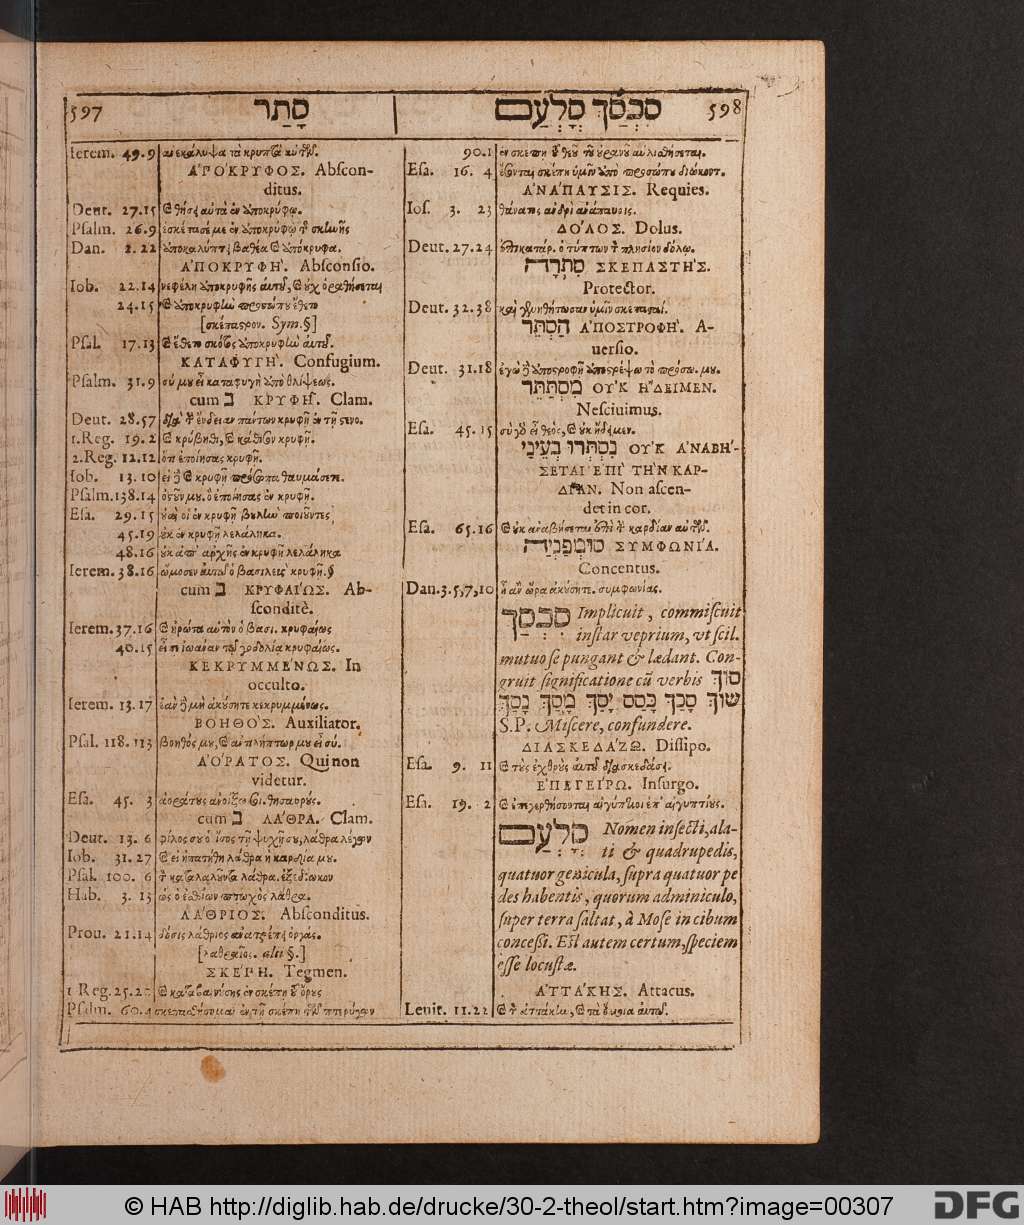 597
סָתַר
Ierem. 49.9 ἀνεκάλυψα τὰ κρυπτὰ αὐτῶν.
ἈΠΟΚΡΥΦΟΣ. Abſcon-
ditus.
Deut. 27.15 καὶ θήσῃ αὐτὰ ἐν ἀποκρύφῳ.
Pſalm. 26.9 ἐσκέπασέ με ἐν ἀποκρύφῳ τῆς σκηνῆς
Dan. 2.22 ἀποκαλύπτει βαθέα καὶ ἀπόκρυφα.
ἈΠΟΚΡΥΦΗ'. Abſconſio.
Iob. 22.14 νεφέλη ἀποκρυφῆς αὐτοῦ, καὶ οὐχ ὁραθήσεται
24.15 καὶ ἀποκρυφὴν προσώπου ἔθετο
[σκέπαστρον. Sym.§]
Pſal. 17.13 καὶ ἔθετο σκότος ἀποκρυφὴν αὐτοῦ.
ΚΑΤΑΦΥΓΗ'. Confugium.
Pſalm. 31.9 σύ μου εἶ καταφυγὴ ἀπὸ θλίψεως.
cum ב ΚΡΥΦΗ͂. Clam.
Deut. 28.57 διὰ τὴν ἔνδειαν πάντων κρυφῇ ἐν τῇ στενο.
1.Reg. 19.2 καὶ κρύβηθι, καὶ κάθισον κρυφῇ.
2.Reg. 12.12 ὅτι ἐποίησας κρυφῇ.
Iob. 13.10 εἰ δὲ καὶ κρυφῇ πρόσωπα θαυμάσετε.
Pſalm. 138.14 ὀστοῦν μου, ὃ ἐποίησας ἐν κρυφῇ.
Eſa. 29.15 καὶ οἱ ἐν κρυφῇ βουλὴν ποιοῦντες
45.19 οὐκ ἐν κρυφῇ λελάληκα.
48.16 οὐκ ἀπ' ἀρχῆς ἐν κρυφῇ λελάληκα
Ierem. 38.16 ὤμοσεν αὐτῷ ὁ βασιλεὺς κρυφῇ.§
cum ב ΚΡΥΦΑΙΏΣ. Ab-
ſconditè.
Ierem. 37.16 καὶ ἠρώτα αὐτὸν ὁ βασι. κρυφαίως
40.15 εἶπεν ἰωανὰν τῷ γοδολίᾳ κρυφαίως.
ΚΕΚΡΥΜΜΕΝΩΣ. In
occulto.
Ierem. 13.17 ἐὰν δὲ μὴ ἀκούσητε κεκρυμμένως.
ΒΟΗΘΟΣ. Auxiliator.
Pſal. 118.113 βοηθός μου, καὶ ἀντιλήπτωρ μου εἶ σύ.
ἈΟΡΑΤΟΣ. Qui non
videtur.
Eſa. 45. 3 ἀοράτους ἀνοίξω σοι θησαυρούς.
cum ב ΛΑΘΡΑ. Clam.
Deut. 13. 6 φίλος σου ὁ ἴσος τῇ ψυχῇ σου, λάθρα λέγων
Iob. 31.27 καὶ εἰ ἠπατήθη λάθρα ἡ καρδία μου.
Pſal. 100. 6 τὸν καταλαλοῦντα λάθρα, ἐξεδίωκον
Hab. 3. 13 ὡς ὁ ἐσθίων πτωχὸς λάθρα.
ΛΑΘΡΙΟΣ. Abſconditus.
Prou. 21.14 δόσις λάθριος ἀνατρέπει ὀργάς.
ΣΚΕΠΗ. Tegmen.
1 Reg. 25.20 καὶ καταβαινούσης ἐν σκέπῃ τοῦ ὄρους
Pſalm. 60.4 σκεπασθήσομαι ἐν τῇ σκέπῃ τῶν πτερύγων
סִכְסַךְ סָלְעָם
598
90.1 ἐν σκέπῃ τοῦ θεοῦ τοῦ οὐρανοῦ αὐλισθήσεται.
Eſa. 16. 4 ἔσονται σκέπη ὑμῖν ἀπὸ προσώπου διώκοντ.
ἈΝΑΠΑΥΣΙΣ. Requies.
Ioſ. 3. 23 θάνατος ἀνδρὶ ἀνάπαυσις.
ΔΟΛΟΣ. Dolus.
Deut. 27.24 ἐπικατάρ. ὁ τύπτων τὸν πλησίον δόλῳ.
סִתְרָה ΣΚΕΠΑΣΤΗΣ.
Protector.
Deut. 32.38 καὶ γενηθήτωσαν ὑμῖν σκεπασταί.
הַסְתֵּר ἈΠΟΣΤΡΟΦΗ'. A-
uerſio.
Deut. 31.18 ἐγὼ δὲ ἀποστροφῇ ἀποστρέψω τὸ πρόσω. μου.
מִסְתַּתֵּר ΟΥ'Κ Η῎ΔΕΙΜΕΝ.
Neſciuimus.
Eſa. 45.15 σὺ γὰρ εἶ θεὸς, καὶ οὐκ ᾔδειμεν.
נִסְתְּרוּ בְּעֵינָי ΟΥ'Κ ἈΝΑΒΗ'-
ΣΕΤΑΙ ἘΠΙ' ΤΗ'Ν ΚΑΡ-
ΔΊΑΝ. Non aſcen-
det in cor.
Eſa. 65.16 καὶ οὐκ ἀναβήσεται ἐπὶ τὴν καρδίαν αὐτῶν.
סוּמְפֹּנְיָה ΣΥΜΦΩΝΊΑ.
Concentus.
Dan. 3.5,7,10 ᾗ ἂν ὥρᾳ ἀκούσητε. συμφωνίας.
סִכְסֵךְ Implicuit, commiſcuit
inſtar veprium, vt ſcil.
mutuo ſe pungant & lædant. Con-
gruit ſignificatione cū verbis סוּךְ
שׂוּךְ סָכַךְ כָּסַס יָסַךְ מָסַךְ נָסַךְ
S.P. Miſcere, confundere.
ΔΙΑΣΚΕΔΑΖΩ. Diſſipo.
Eſa. 9. 11 καὶ τοὺς ἐχθροὺς αὐτοῦ διασκεδάσει.
ἘΠΕΓΕΙΡΩ. Inſurgo.
Eſa. 19. 2 καὶ ἐπεγερθήσονται αἰγύπτιοι ἐπ' αἰγυπτίους.
סָלְעָם Nomen inſecti, ala-
ti & quadrupedis,
quatuor genicula, ſupra quatuor pe
des habentis, quorum adminiculo,
ſuper terra ſaltat, à Moſe in cibum
conceſſi. Eſt autem certum, ſpeciem
eſſe locuſtæ.
ἈΤΤΑΚΗΣ. Attacus.
Leuit. 11.22 καὶ τὸν ἀττάκην, καὶ τὰ ὅμοια αὐτοῦ.
© HAB http://diglib.hab.de/drucke/30-2-theol/start.htm?image=00307
DFG